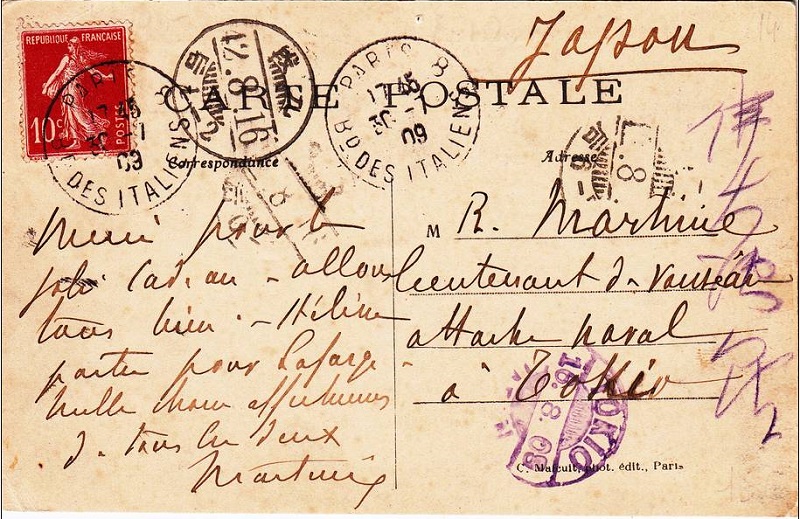 Japon
REPUBLIQUE FRANÇAISE
10c
POSTES
PARIS 8
17 45
30 -7
09
Bd DES ITALIENS
PARIS 8
17 45
30 -7
09
Bd DES ITALIENS
42.8.16
CARTE POSTALE
Correspondance
Adresse
Merci pour le
joli cadeau - allons
tous bien. - Hélène
partie pour Lafarge
Mille choses affectueuses
de tous les deux
M R. Martinie
Lieutenant de Vaisseau
attaché naval
à Tokio
TOKIO
16.8.09
C. Malcuit, phot. édit., Paris